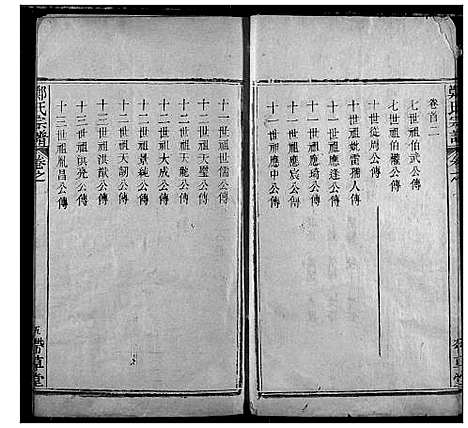 卷首二
七世祖伯武公傳
七世祖伯權公傳
十世從周公傳
十一世祖妣雷孺人傳
十一世祖應逵公傳
十一世祖應琦公傳
十一世祖應宸公傳
十一世祖應中公傳
十一世祖世儒公傳
十二世祖天璧公傳
十二世祖天龍公傳
十二世祖大成公傳
十二世祖景純公傳
十二世祖天韌公傳
十三世祖淇猷公傳
十三世祖淇堯公傳
十三世祖胤昌公傳
鄭氏宗譜 卷之